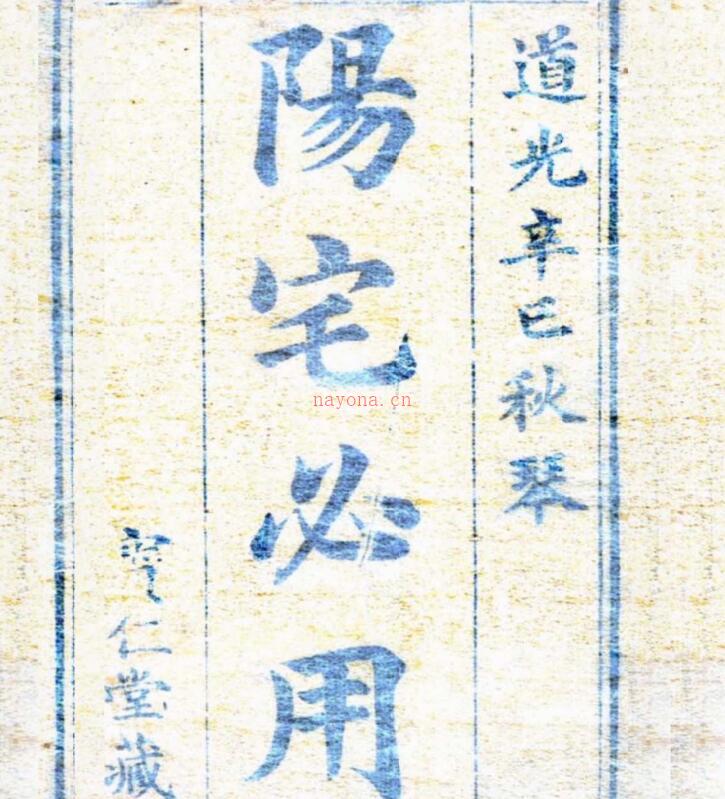 道光辛巳秋琴
陽宅必用
仁堂藏
nayona.cn